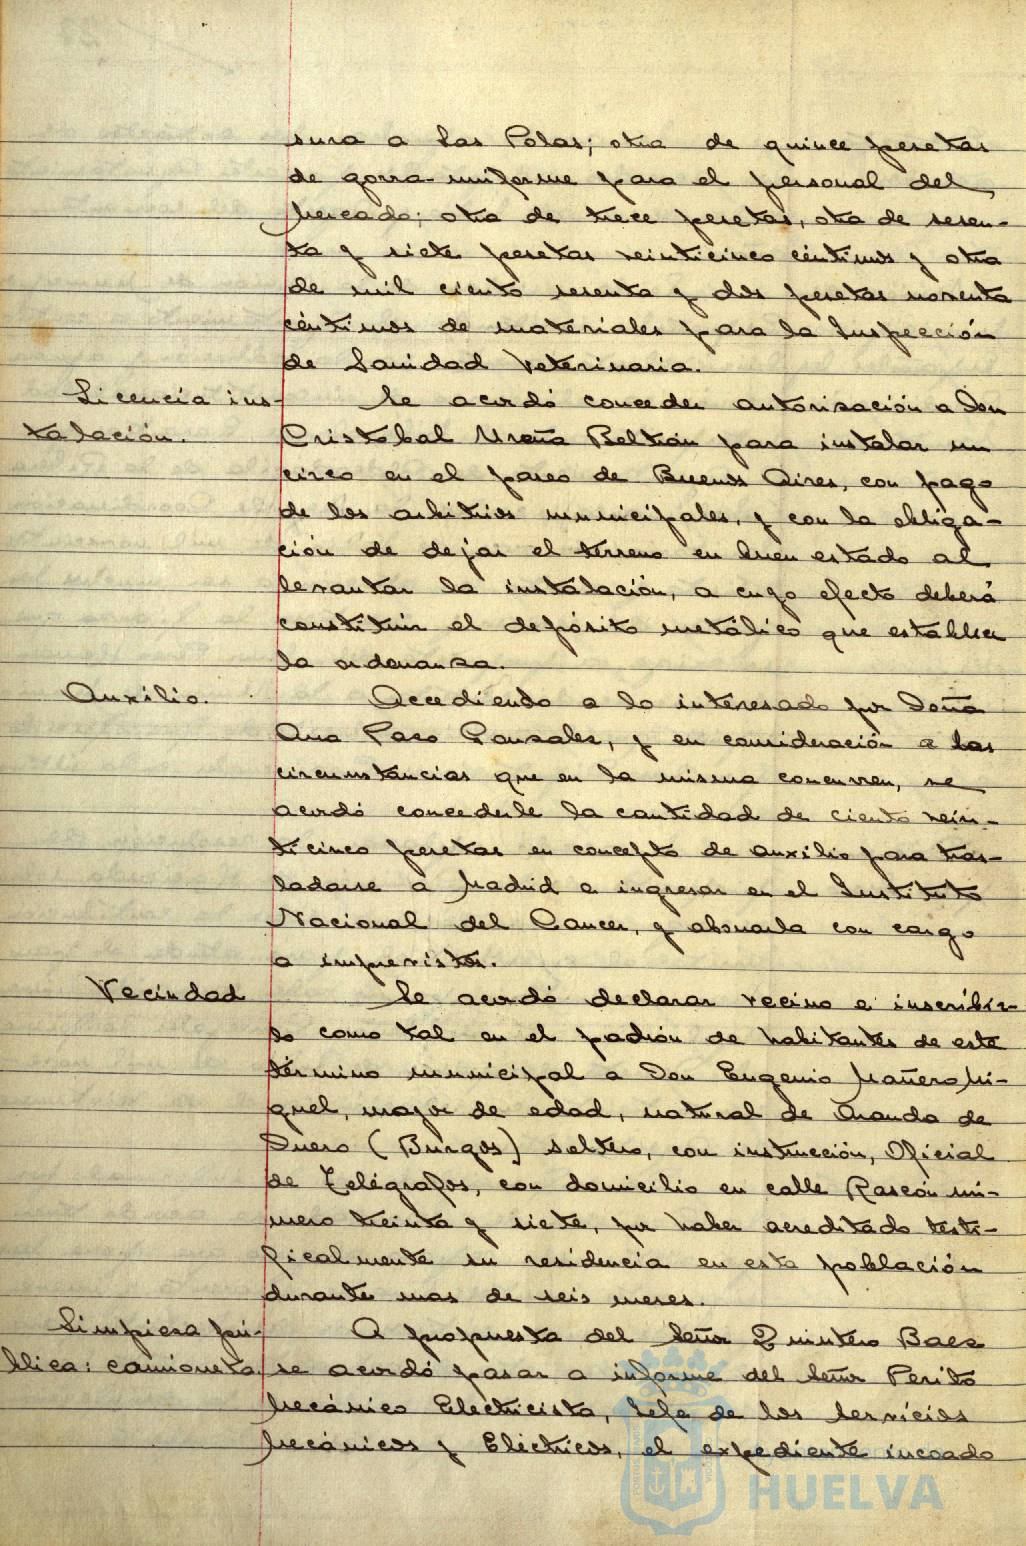 sura a las Polas; otra de quince pesetas
de gorra uniforme para el personal del
Mercado; otra de trece pesetas, otra de sesen-
ta y siete pesetas veinticinco céntimos y otra
de mil ciento sesenta y dos pesetas noventa
céntimos de materiales para la Inspección
de Sanidad Veterinaria.
Licencia ins-
talación.
Se acordó conceder autorización a Don
Cristóbal Ureña Beltrán para instalar un
circo en el paseo de Buenos Aires, con pago
de los arbitrios municipales, y con la obliga-
ción de dejar el terreno en buen estado al
levantar la instalación, a cuyo efecto deberá
constituir el depósito metálico que establece
la ordenanza.
Auxilio.
Accediendo a lo interesado por Doña
Ana Paso Gonzales, y en consideración a las
circunstancias que en la misma concurren, se
acordó concederle la cantidad de ciento vein-
ticinco pesetas en concepto de auxilio para tras-
ladarse a Madrid a ingresar en el Instituto
Nacional del Cancer, y abonarla con cargo
a imprevistos.
Vecindad
Se acordó declarar vecino e inscribir-
lo como tal en el padrón de habitantes de este
término municipal a Don Eugenio Mañero Mi-
guel, mayor de edad, natural de Aranda de
Duero (Burgos) soltero, con instrucción, Oficial
de Telégrafos, con domicilio en calle Rascón nú-
mero treinta y siete, por haber acreditado testi-
ficalmente su residencia en esta población
durante mas de seis meses.
Limpieza pú-
blica: camioneta
A propuesta del Señor Quintero Baez
se acordó pasar a informe del Señor Perito
Mecánico Electricista, Jefe de los Servicios
Mecánicos y Eléctricos, el expediente incoado
HUELVA